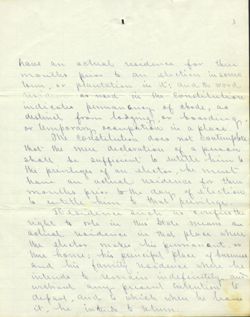 have an actual residence for three
months prior to an election in some
town, or plantation in it; and the word
as used in the constitution
indicates permanency of abode, as
distinct from lodging or boarding,
or temporary occupation in a place.
The constitution does not contemplate
that the mere declaration of a person
shall be sufficient to entitle him to
the privileges of an elector, he must
have an actual residence for three
months prior to the day of election
to entitle him to that privilege.
Residence such as confers the
right to vote in this State means an
actual residence in that place where
the elector makes his permanent or
true home; his principal place of business
and his family residence where he
intends to remain indefinitely and
without any present intention to
depart, and to which when he leaves
it, he intends to return.